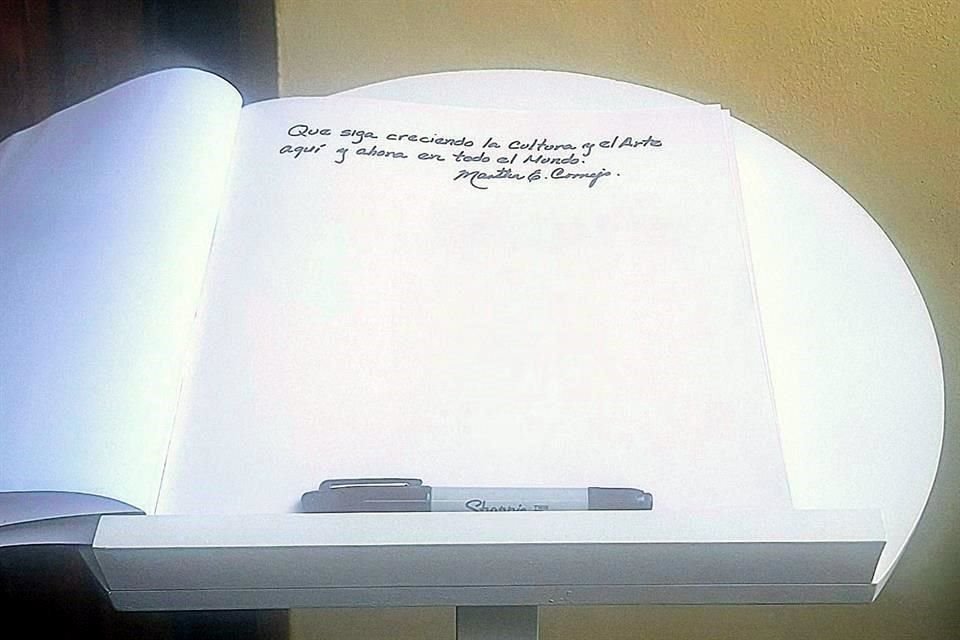 Que siga creciendo la cultura y el Arte
aquí y ahora en todo el Mundo.
Martha E. Cornejo.
Sharpie